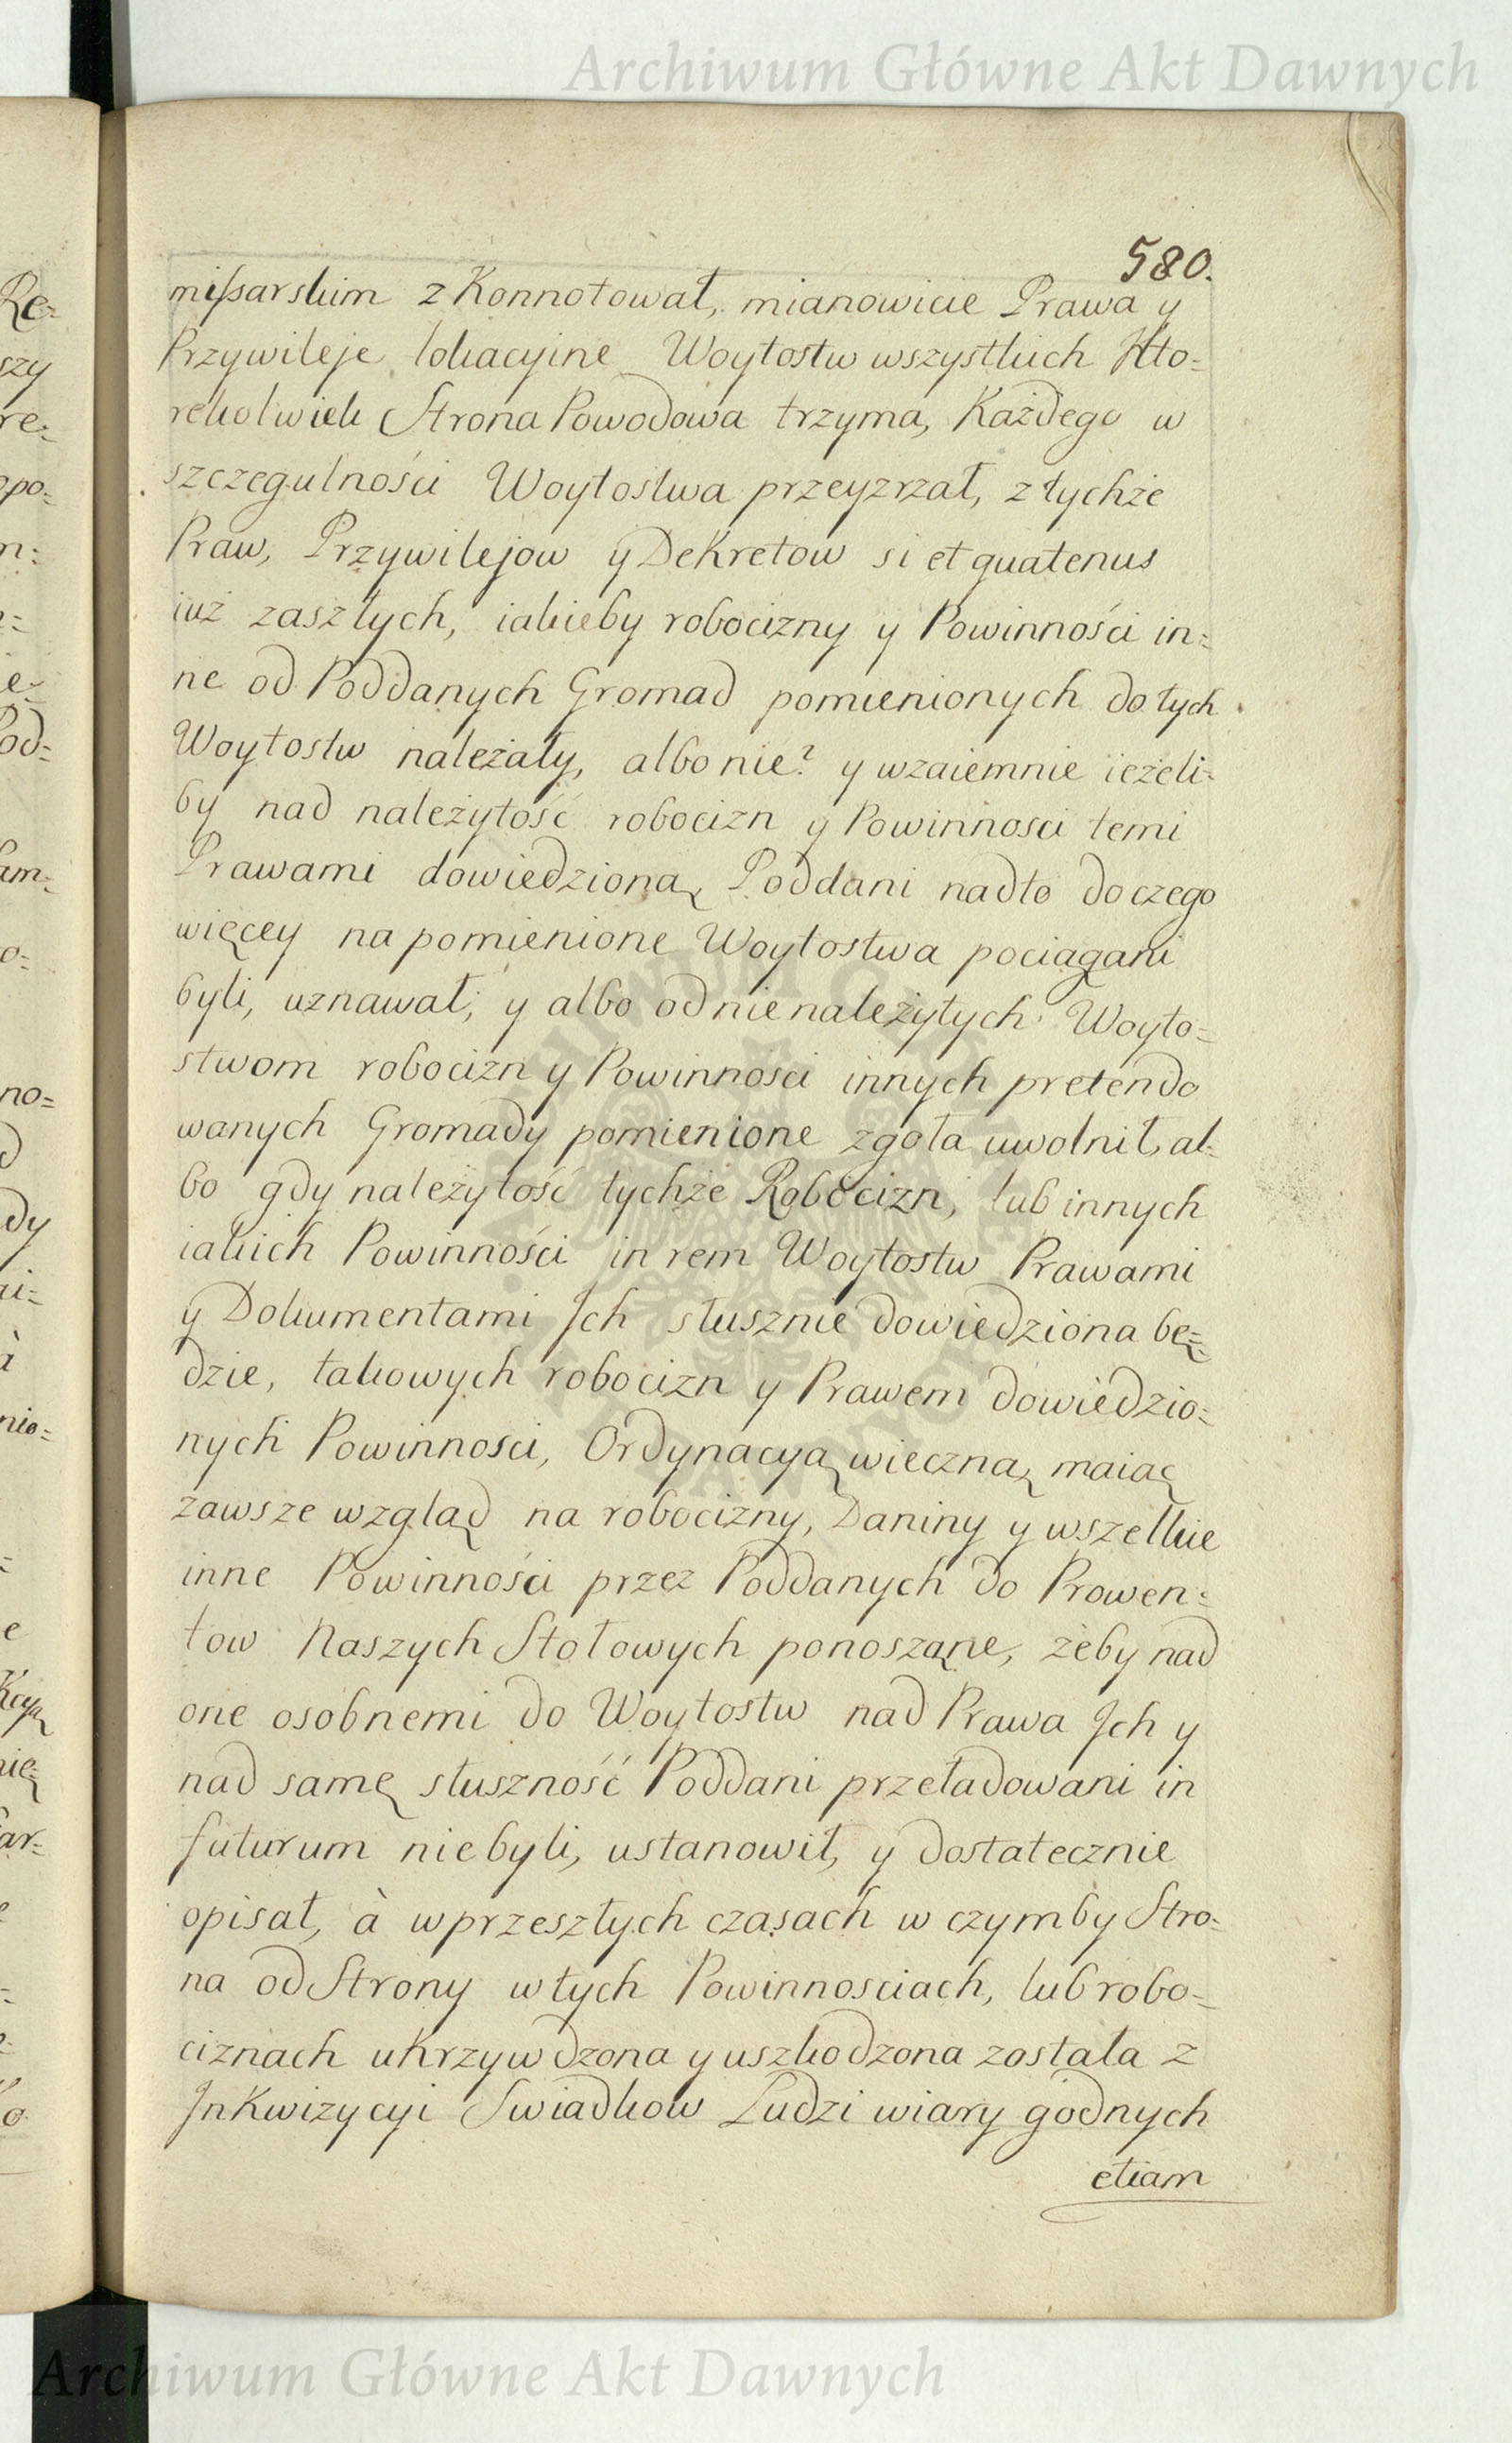 Archiwum Główne Akt Dawnych
580.
missarskim z Konnotował, mianowicie Prawa y
Przywileje lokacyine Woytostw wszystkich Kto=
rekolwiek Strona Powodowa trzyma, Każdego w
szczegulności Woytostwa przeyzrzał, z tychże
Praw, Przywilejow y Dekretow si et quatenus
iuż zaszłych, iakieby robocizny y Powinności in=
ne od Poddanych Gromad pomienionych do tych
Woytostw należały, albo nie? y wzaiemnie ieżeli=
by nad należytość robocizn y Powinnosci temi
Prawami dowiedzioną Poddani nadto do czego
więcey na pomienione Woytostwa pociągani
byli, uznawał; y albo od nienależytych Woyto=
stwom robocizn y Powinności innych pretendo
wanych Gromady pomienione zgoła uwolnił, al=
bo gdy należytość tychże Robocizn, lub innych
iakich Powinności in rem Woytostw Prawami
y Dokumentami Jch słusznie dowiedziona bę=
dzie, takowych robocizn y Prawem dowiedzio=
nych Powinnosci, Ordynacyą wieczną maiąc
zawsze wzgląd na robocizny, Daniny y wszelkie
inne Powinności przez Poddanych do Prowen=
tow Naszych Stołowych ponoszące, żeby nad
one osobnemi do Woytostw nad Prawa Jch y
nad samę słuszność Poddani przeładowani in
futurum niebyli, ustanowił, y dostatecznie
opisał, à w przeszłych czasach w czymby Stro=
na od Strony w tych Powinnosciach, lub robo=
ciznach ukrzywdzona y uszkodzona została z
Jnkwizycyi Swiadkow Ludzi wiary godnych
etiam
Re=
szy
re=
opo=
m=
ie=
Pod=
am=
o=
no=
dy
ai=
à
nio=
e
kcyą
nię=
ar=
o
Archiwum Główne Akt Dawnych